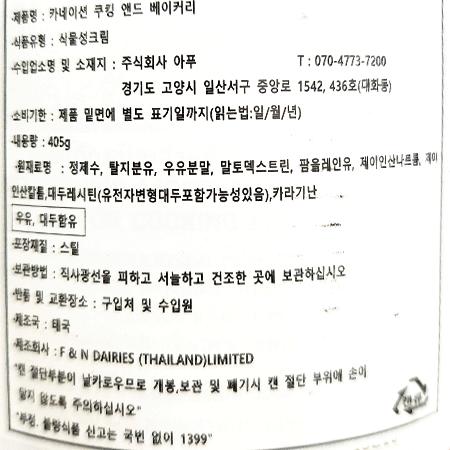 ·제품명 : 카네이션 쿠킹 앤드 베이커리
·식품유형 : 식물성크림
·수입업소명 및 소재지 : 주식회사 아푸 T : 070-4773-7200
경기도 고양시 일산서구 중앙로 1542, 436호(대화동)
·소비기한 : 제품 밑면에 별도 표기일까지(읽는법:일/월/년)
·내용량 : 405g
·원재료명 : 정제수, 탈지분유, 우유분말, 말토덱스트린, 팜올레인유, 제이인산나트륨, 제이
인산칼륨,대두레시틴(유전자변형대두포함가능성있음),카라기난
우유, 대두함유
·포장재질 : 스틸
·보관방법 : 직사광선을 피하고 서늘하고 건조한 곳에 보관하십시오
·반품 및 교환장소 : 구입처 및 수입원
·제조국 : 태국
·제조회사 : F & N DAIRIES (THAILAND)LIMITED
"캔 절단부분이 날카로우므로 개봉,보관 및 폐기시 캔 절단 부위에 손이
닿지 않도록 주의하십시오"
"부정. 불량식품 신고는 국번 없이 1399"